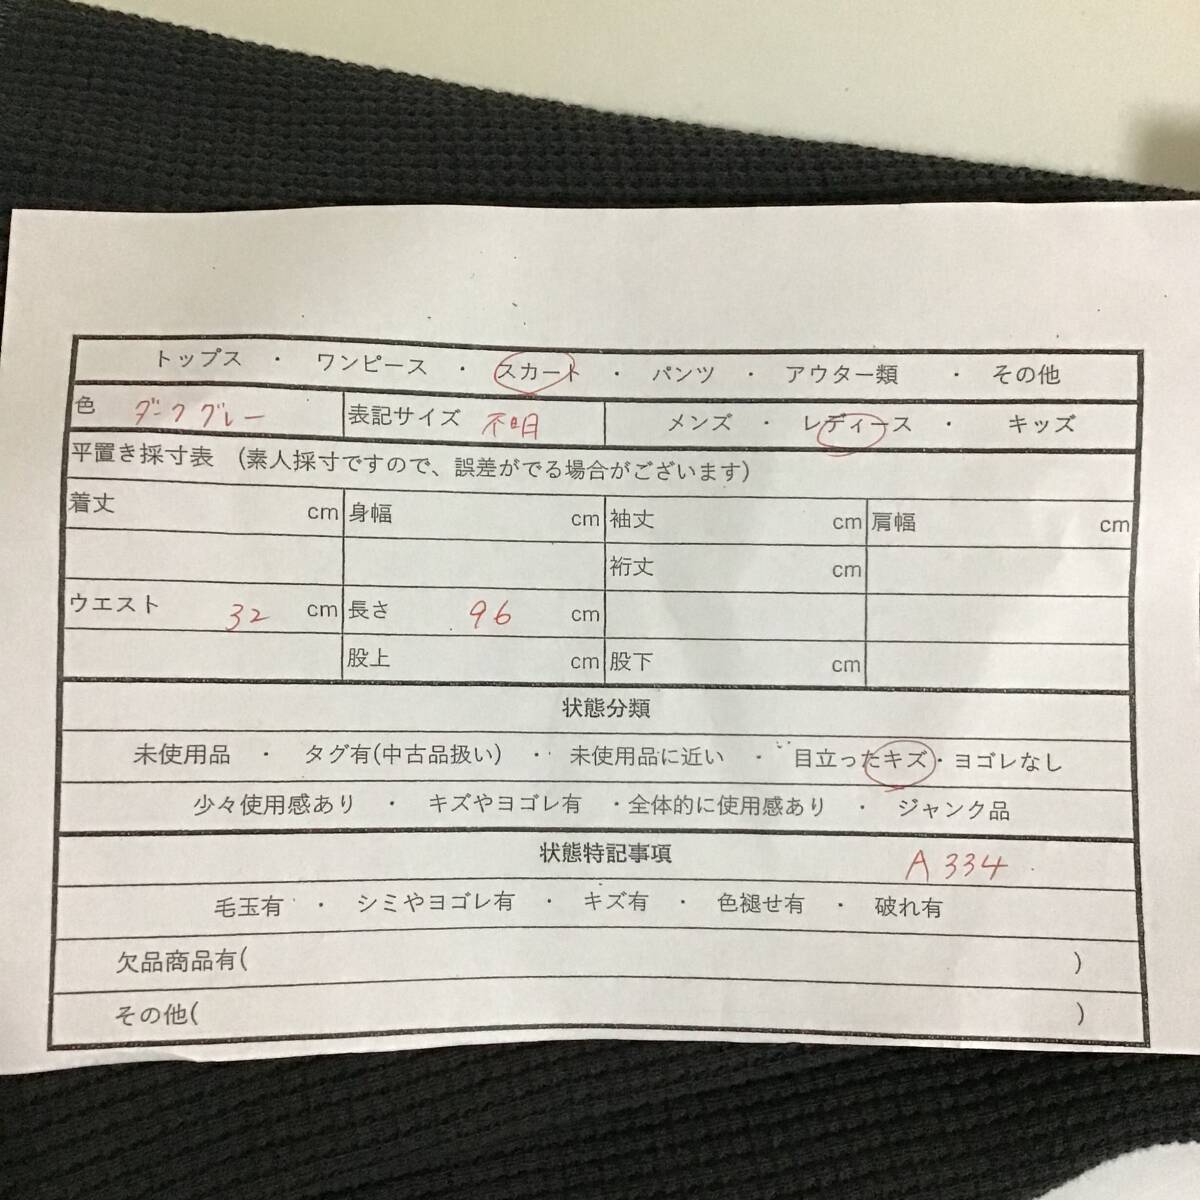 トップス ・ ワンピース ・ スカート ・ パンツ ・ アウター類 ・ その他
色 ダークグレー 表記サイズ 不明 メンズ ・ レディース ・ キッズ
平置き採寸表 (素人採寸ですので、誤差がでる場合がございます)
着丈 cm 身幅 cm 袖丈 cm 肩幅 cm
裄丈 cm
ウエスト 32 cm 長さ 96 cm
股上 cm 股下 cm
状態分類
未使用品 ・ タグ有(中古品扱い) ・ 未使用品に近い ・ 目立ったキズ・ヨゴレなし
少々使用感あり ・ キズやヨゴレ有 ・全体的に使用感あり ・ ジャンク品
状態特記事項 A334
毛玉有 ・ シミやヨゴレ有 ・ キズ有 ・ 色褪せ有 ・ 破れ有
欠品商品有( )
その他( )